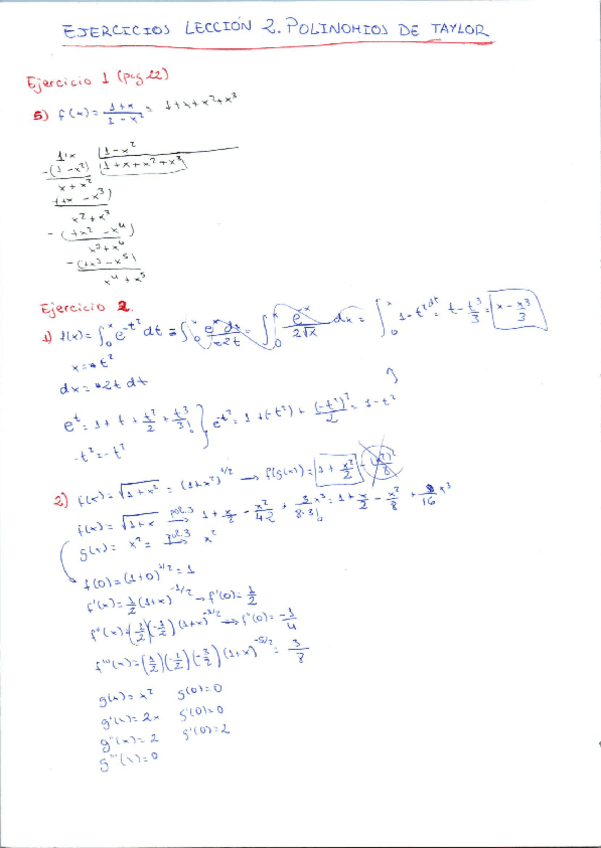 EJERCICIOS LECCIÓN 2. POLINOMIOS DE TAYLOR
Ejercicio 1 (pag 22)
5) f(x) = (1+x)/(1-x²) = 1+x+x²+x³
1+x | 1-x²
-(1-x²) 1+x+x²+x³
x+x²
-(+x - x³)
x²+x³
-(+x² - x⁴)
x³+x⁴
-(+x³ - x⁵)
x⁴+x⁵
Ejercicio 2.
1) f(x) = ∫₀ˣ e^(-t²) dt = ∫₀ˣ = ∫₀ˣ eˣ/(2√x) dx = ∫₀ˣ 1-t² dt = t - t³/3 = x - x³/3
dx = 2t dt
eᵗ = 1+t+t²/2+t³/3! } e^(-t²) = 1+(-t²)+(-t²)²/2 = 1-t²
-t² = -t²
2) f(x) = √(1+x²) = (1+x²)^(1/2) → f(g(x)) = 1 + x²/2 - (x²)²/8
f(x) = √(1+x) pol.3 → 1 + x/2 - x²/4·2 + 3/(8·3!) x³ = 1 + x/2 - x²/8 + /16 x³
g(x) = x² = pol.3 → x²
f(0) = (1+0)^(1/2) = 1
f'(x) = 1/2 (1+x)^(-1/2) → f'(0) = 1/2
f''(x) = (1/2)(-1/2)(1+x)^(-3/2) → f''(0) = -1/4
f'''(x) = (1/2)(-1/2)(-3/2)(1+x)^(-5/2) = 3/8
g(x) = x² g(0) = 0
g'(x) = 2x g'(0) = 0
g''(x) = 2 g'(0) = 2
g'''(x) = 0